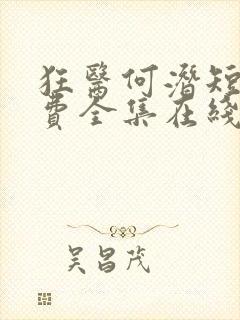 狂醫何潛短
費全集在綫
吴昌茂